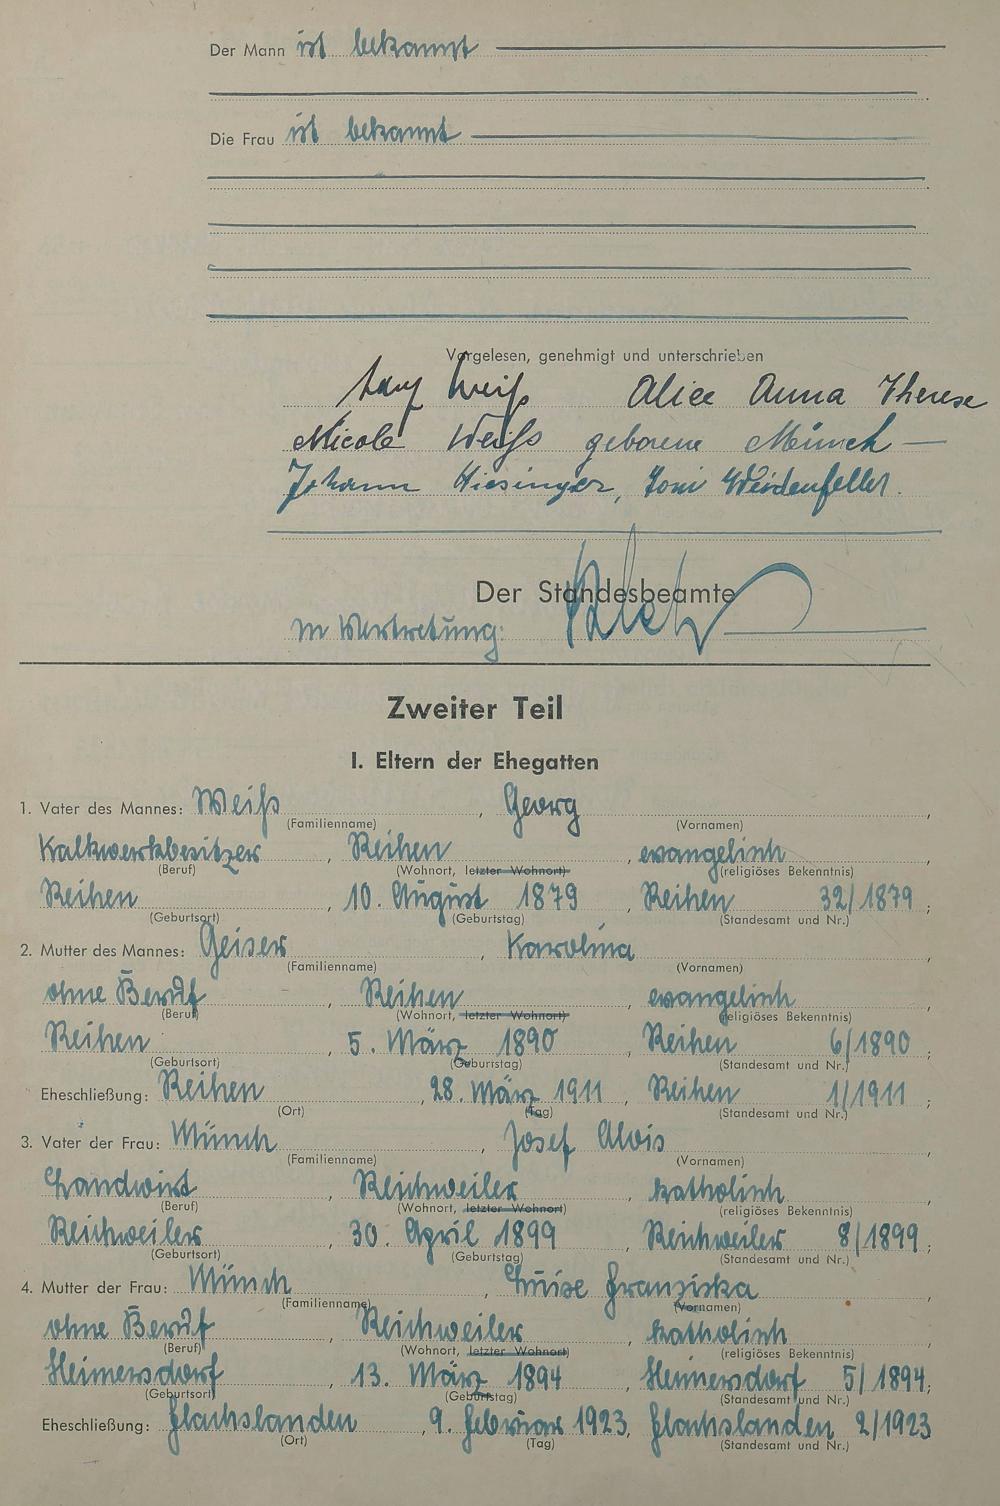 Der Mann ist bekannt
Die Frau ist bekannt
Vorgelesen, genehmigt und unterschrieben
Weiß Alice Anna Therese
Nicole Weiß geborene Münch
Johann Wiesinger, Toni Weidenfeller.
Der Standesbeamte
In Vertretung:
Zweiter Teil
I. Eltern der Ehegatten
1. Vater des Mannes: Weiß, Georg,
(Familienname) (Vornamen)
Kalkwerkbesitzer, Reihen, evangelisch,
(Beruf) (Wohnort, letzter Wohnort) (religiöses Bekenntnis)
Reihen, 10. August 1879, Reihen 32/1879;
(Geburtsort) (Geburtstag) (Standesamt und Nr.)
2. Mutter des Mannes: Geiser, Karolina,
(Familienname) (Vornamen)
ohne Beruf, Reihen, evangelisch,
(Beruf) (Wohnort, letzter Wohnort) (religiöses Bekenntnis)
Reihen, 5. März 1890, Reihen 6/1890,
(Geburtsort) (Geburtstag) (Standesamt und Nr.)
Eheschließung: Reihen, 28. März 1911, Reihen 1/1911;
(Ort) (Tag) (Standesamt und Nr.)
3. Vater der Frau: Münch, Josef Alois,
(Familienname) (Vornamen)
Landwirt, Reichweiler, katholisch,
(Beruf) (Wohnort, letzter Wohnort) (religiöses Bekenntnis)
Reichweiler, 30. April 1899, Reichweiler 8/1899;
(Geburtsort) (Geburtstag) (Standesamt und Nr.)
4. Mutter der Frau: Münch, Luise Franziska,
(Familienname) (Vornamen)
ohne Beruf, Reichweiler, katholisch,
(Beruf) (Wohnort, letzter Wohnort) (religiöses Bekenntnis)
Heimersdorf, 13. März 1894, Heimersdorf 5/1894;
(Geburtsort) (Geburtstag) (Standesamt und Nr.)
Eheschließung: Flachslanden, 9. Februar 1923, Flachslanden 2/1923
(Ort) (Tag) (Standesamt und Nr.)